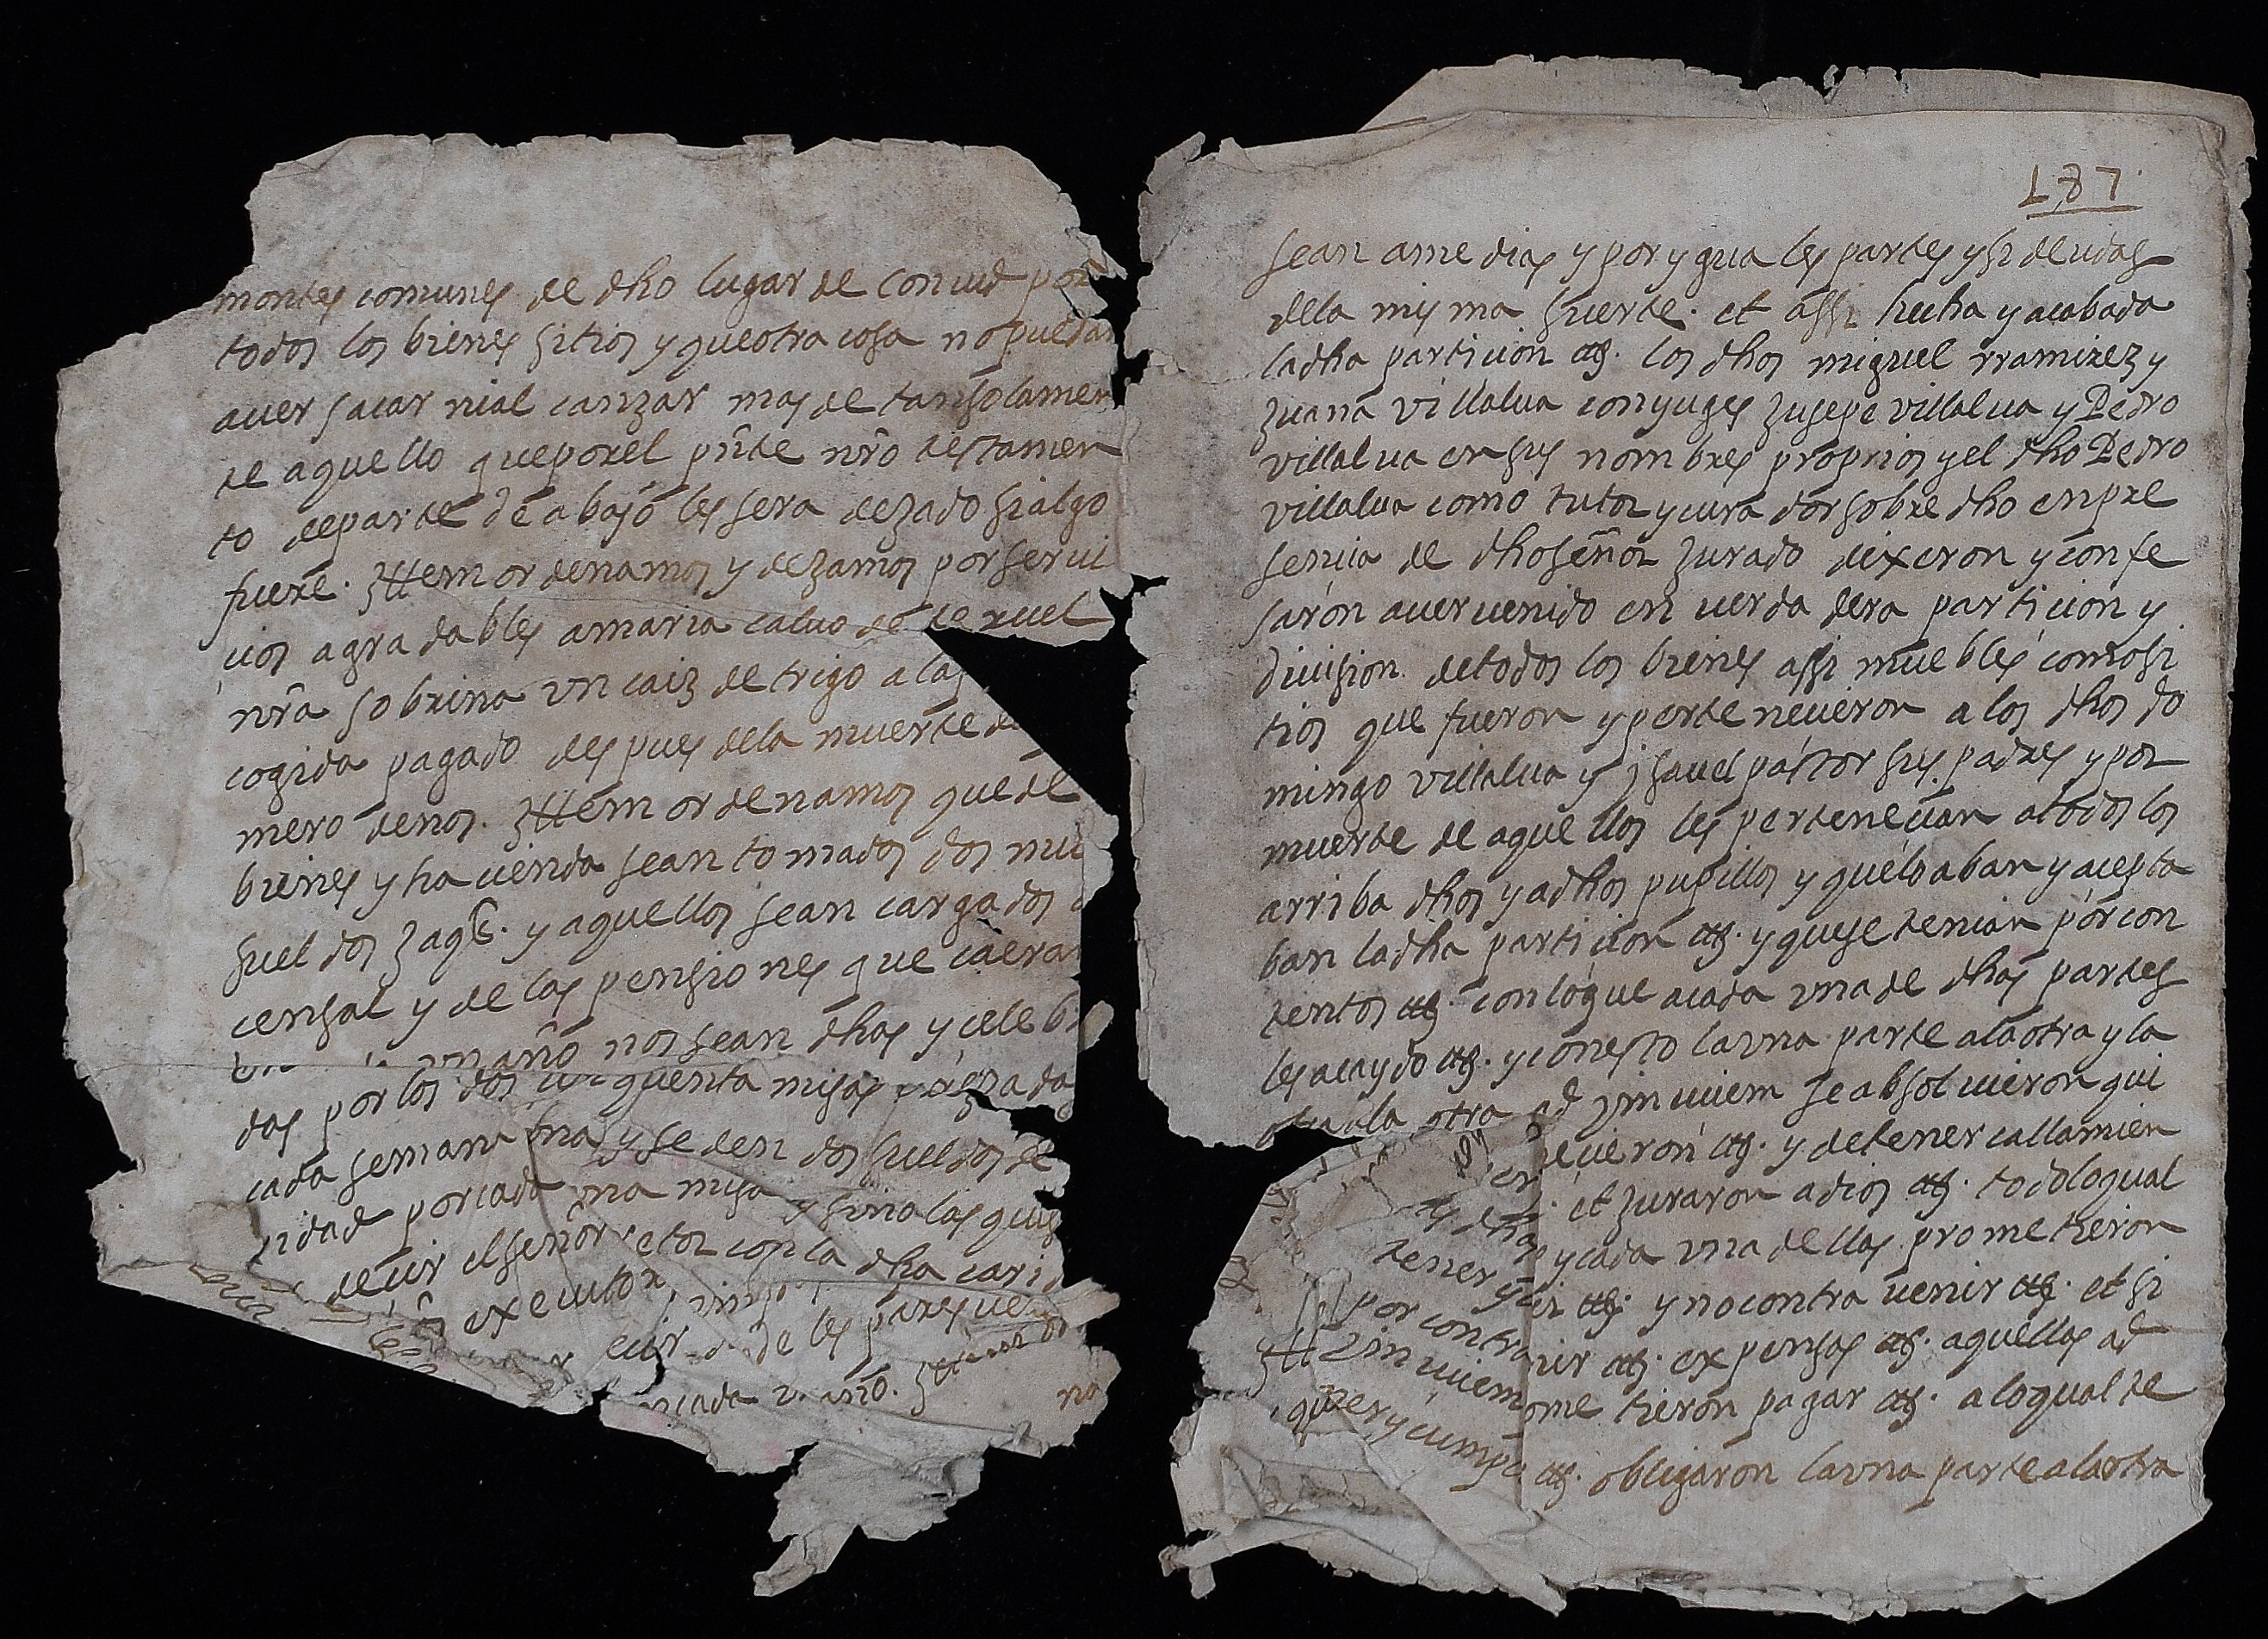 montes comunes de dho lugar de conuid por
todos los bienes sitios y que otra cosa no puedan
auer sacar ni alcanzar mas de tan solamen
te aquello que por el pñte nr̃o testamen
to de parte de abajo les sera dezado si algo
fuere. Ittem ordenamos y dezamos por serui
cios agradables a maria caluo de teruel
nr̃a sobrina vn caiz de trigo a la
cogida pagado despues de la muerte de
mero de nos. Ittem ordenamos que de
bienes y hacienda sean tomados dos mil
sueldos zaqs. y aquellos sean cargados a
censal y de las pensiones que caeran
vn año nos sean dhas y celebra
das por los dos cinquenta misas rezadas
cada semana vna y se den dos sueldos de
ridad por cada vna misa y sino las quis
decir el señor retor con la dha carid
executor
de les parezcue
cada vn año. Ittem
no
187
sean a medias y por yguales partes y si deudas
de la misma suerte. et assi hecha y acabada
la dha particion etc. los dhos miguel rramirez y
Juana villalua conyuges Jusepe villalua y Pedro
villalua en sus nombres proprios y el dho Pedro
villalua como tutor y curador sobredho en pre
sencia de dho señor Jurado dixeron y confe
saron auer uenido en uerdadera particion y
diuision de todos los bienes assi muebles como si
tios que fueron y pertenecieron a los dhos do
mingo villalua y jsauel pastor sus padres y por
muerte de aquellos les pertenecian a todos los
arriba dhos y a dhos pupillos y que loaban y acepta
ban la dha particion etc. y que se tenian por con
tentos etc. con lo que a cada vna de dhas partes
les a caydo etc. y con esto la vna parte a la otra y la
otra a la otra ad jnuicem se absoluieron qui
cieron etc. y de tener callamien
et juraron a dios etc. todo lo qual
dhas y cada vna dellas prometieron
tener y etc. y no contrauenir etc. et si
por contrauenir etc. expensas etc. aquellas ad
Inuicem prometieron pagar etc. a lo qual te
ner y cumplir etc. obligaron la vna parte a la otra